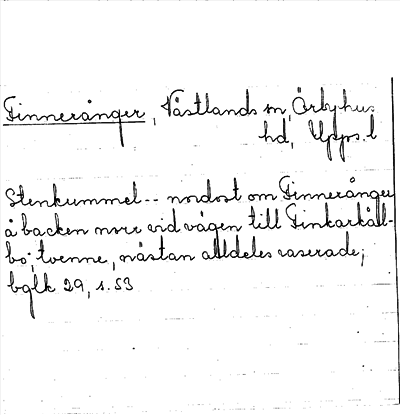 Finnerånger, Västlands sn, Örbyhus
hd, Upps. l
Stenkummel -- nordost om Finnerånger
å backen nvr vid vägen till Finkarkäll-
bo; tvenne, nästan alldeles raserade;
bglk 29, s. 53